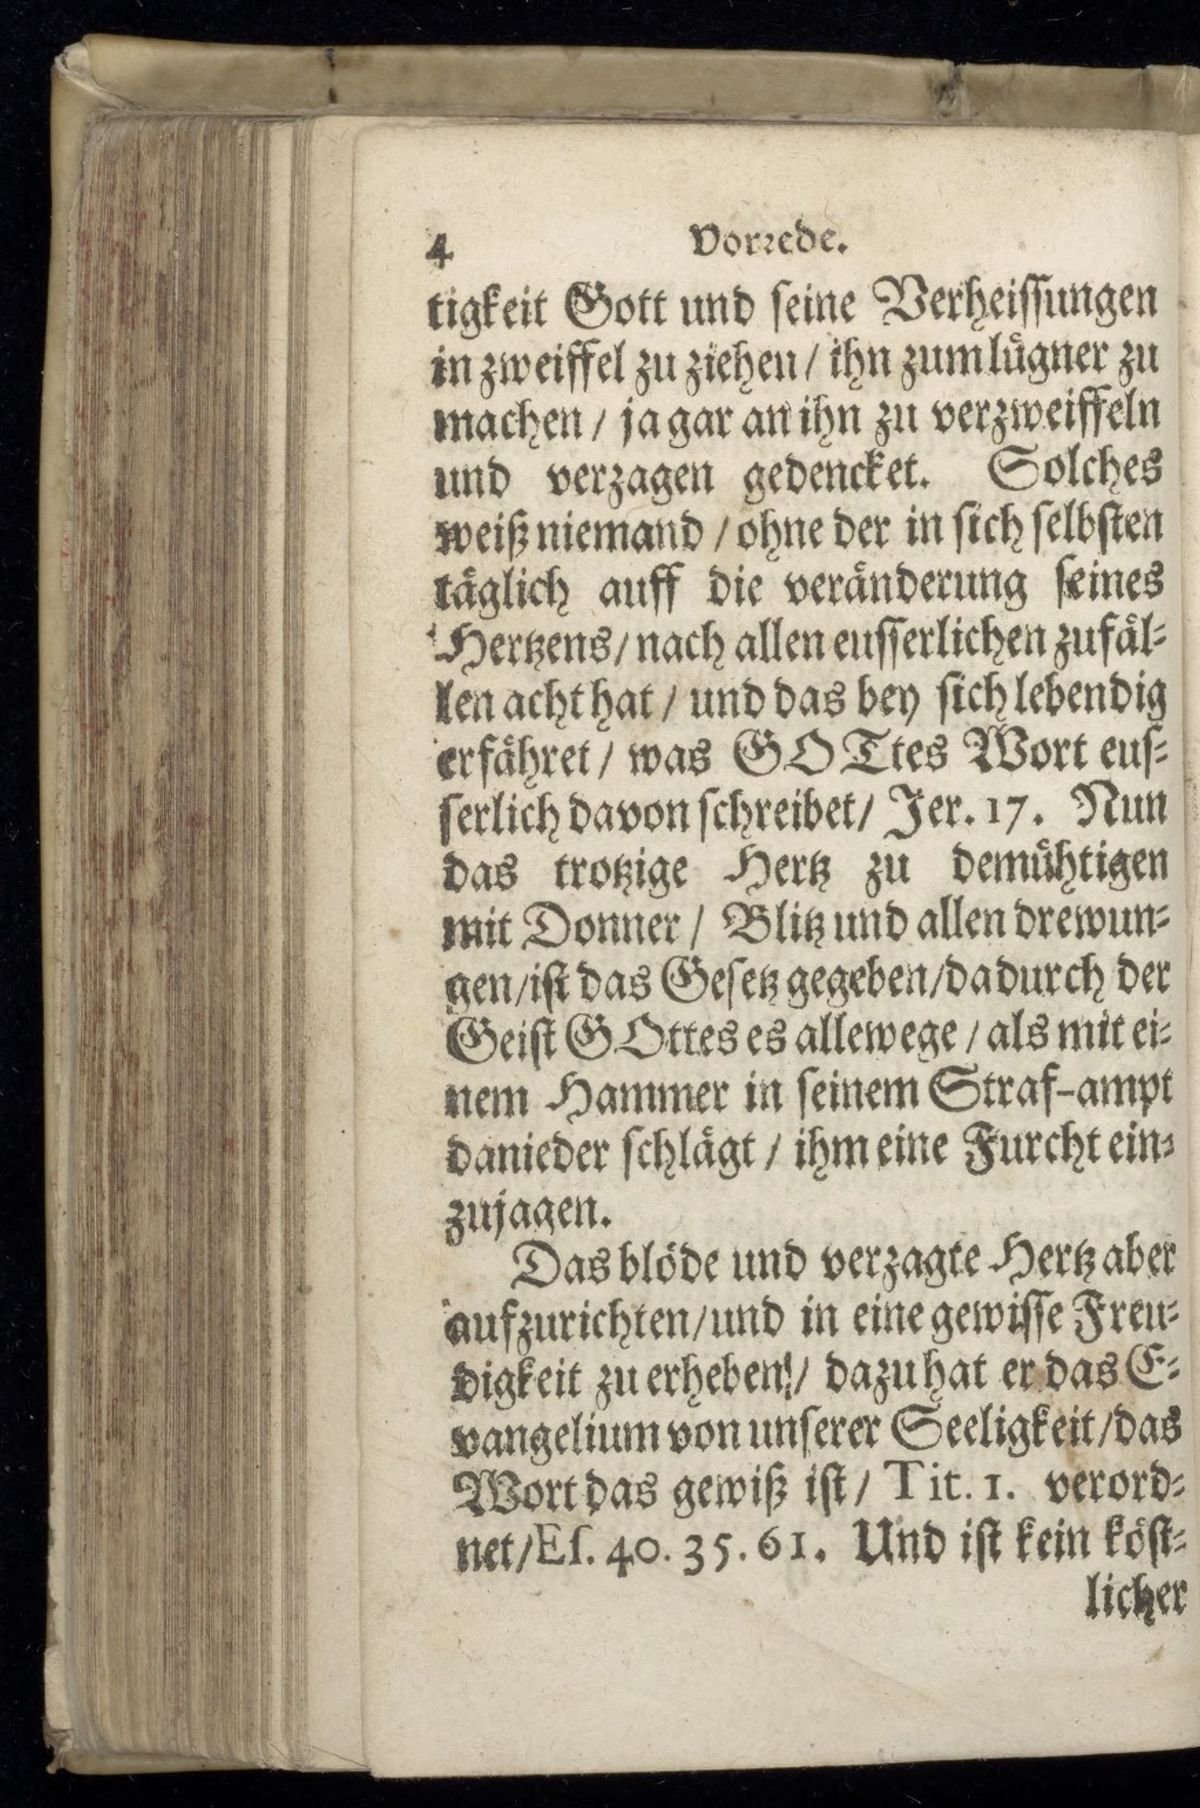 4 Vorrede.
tigkeit Gott und ſeine Verheiſſungen
in zweiffel zu ziehen / ihn zum luͤgner zu
machen / ja gar an ihn zu verzweiffeln
und verzagen gedencket. Solches
weiß niemand / ohne der in ſich ſelbſten
taͤglich auff die veraͤnderung ſeines
Hertzens / nach allen euſſerlichen zufaͤl⸗
len acht hat / und das bey ſich lebendig
erfaͤhret / was GOTtes Wort euſ⸗
ſerlich davon ſchreibet / Jer. 17. Nun
das trotzige Hertz zu demuͤhtigen
mit Donner / Blitz und allen drewun⸗
gen / iſt das Geſetz gegeben / dadurch der
Geiſt GOttes es allewege / als mit ei⸗
nem Hammer in ſeinem Straf-ampt
danieder ſchlaͤgt / ihm eine Furcht ein⸗
zujagen.
Das bloͤde und verzagte Hertz aber
aufzurichten / und in eine gewiſſe Freu⸗
digkeit zu erheben / dazu hat er das E⸗
vangelium von unſerer Seeligkeit / das
Wort das gewiß iſt / Tit. 1. verord⸗
net / Eſ. 40. 35. 61. Und iſt kein koͤſt⸗
licher